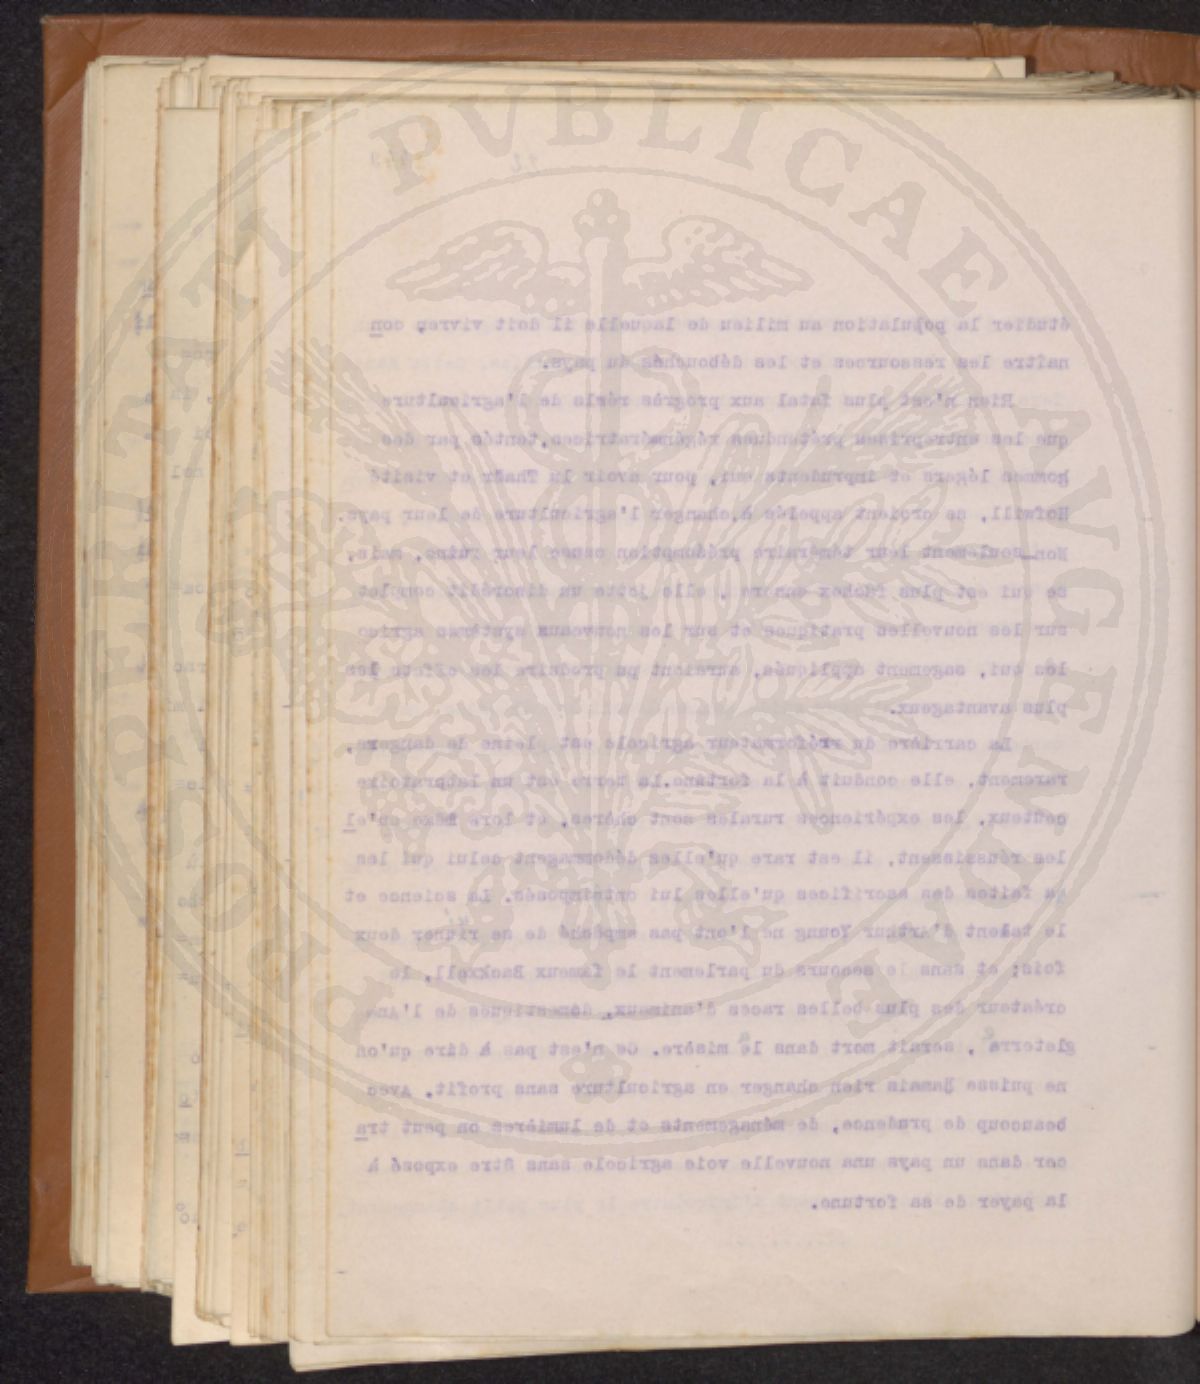 étudier la population au milieu de laquelle il doit vivre, con
naître les ressources et les débouchés du pays.
Rien n'est plus fatal aux progrès réels de l'agriculture
que les entreprises prétendues régénératrices, tentées par des
hommes légers et imprudents qui, pour avoir lu Thaër et visité
Hofwill, se croient appelés à changer l'agriculture de leur pays.
Non seulement leur téméraire présomption cause leur ruine, mais,
se qui est plus fâchex encore, elle jette un discrédit complet
sur les nouvelles pratiques et sur les nouveaux systèmes agrico
les qui, sagement appliqués, auraient pu produire les effets les
plus avantageux.
La carrière du réformateur agricole est pleine de dangers,
rarement, elle conduit à la fortune. la terre est un laboratoire
coûteux, les expériences rurales sont chères, et lors même qu'el
les réussissent, il est rare qu'elles dédommagent celui qui les
a faites des sacrifices qu'elles lui ont imposés. La science et
le talent d'Arthur Young ne l'ont pas empêché de se ruiner deux
fois; et sans le secours du parlement le fameux Backwell, le
créateur des plus belles races d'animaux domestiques de l'An
gleterre, serait mort dans la misère. Ce n'est pas à dire qu'on
ne puisse jamais rien changer en agriculture sans profit. Avec
beaucoup de prudence, de ménagements et de lumières on peut tra
cer dans un pays una nouvelle voie agricole sans être exposé à
la payer de sa fortune.
PROSPERITATI PVBLICAE AVGENDAE